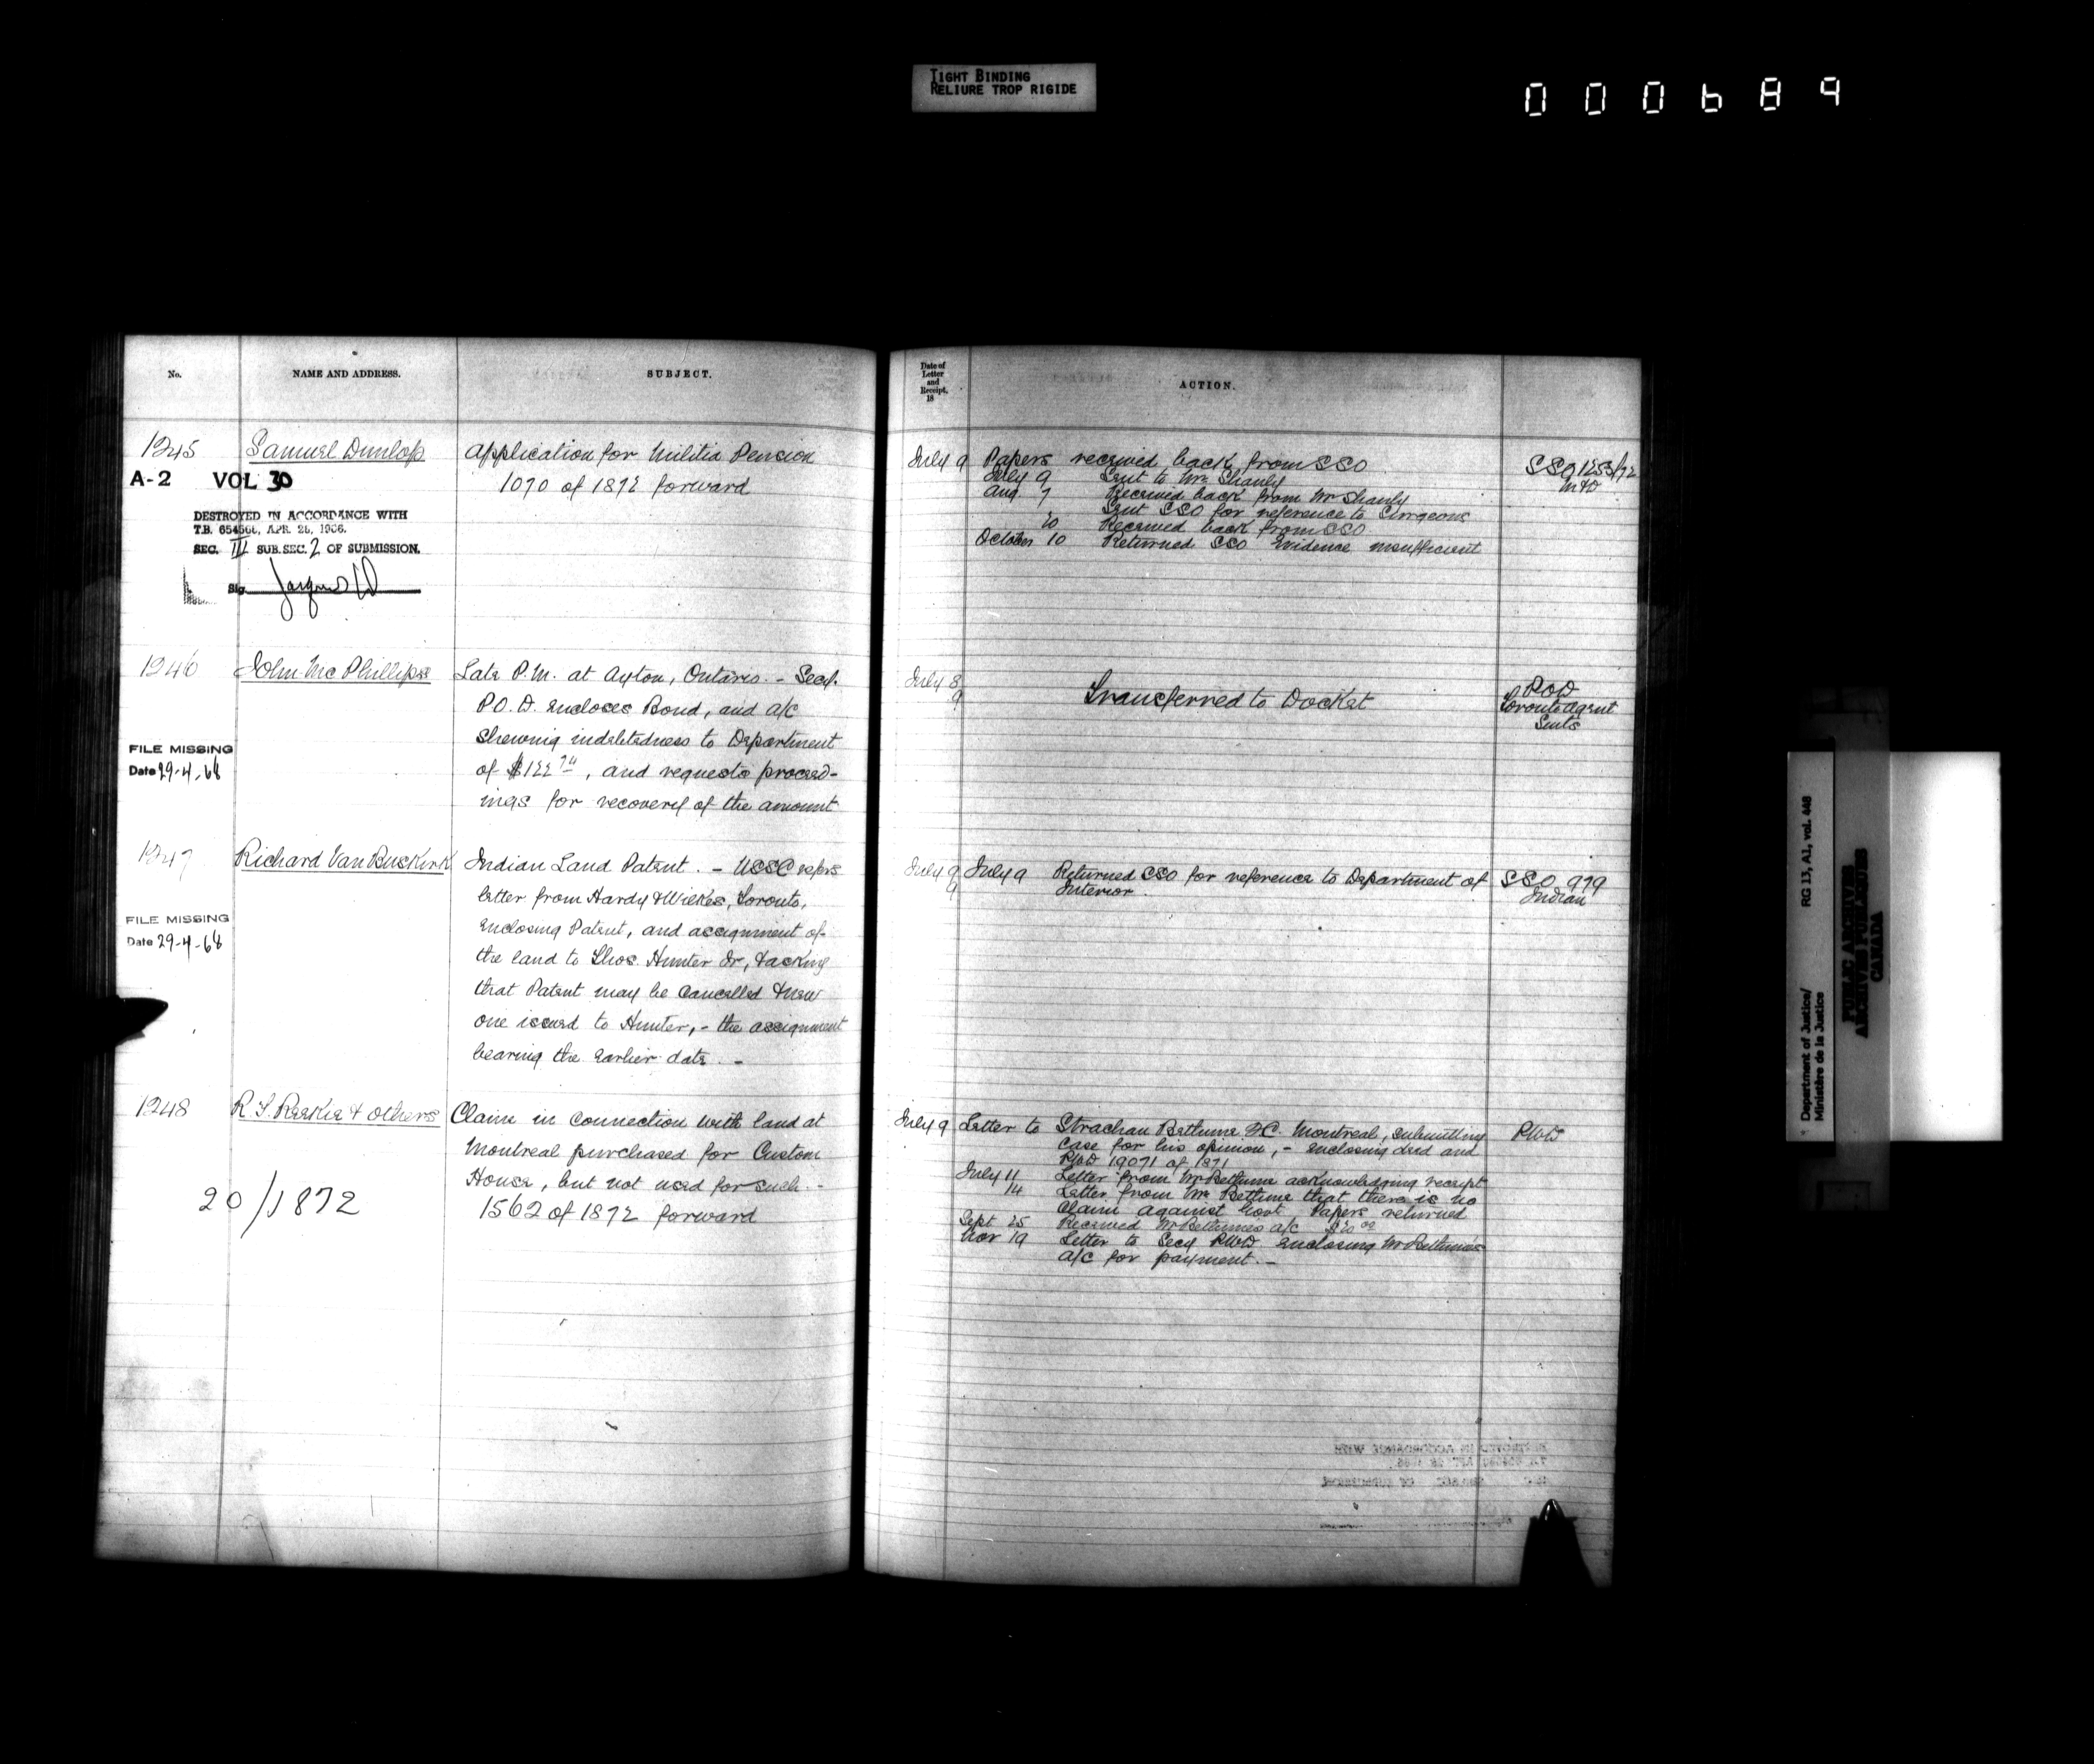 TIGHT BINDING
RELIURE TROP RIGIDE
000689
No.
NAME AND ADDRESS.
SUBJECT.
1245
Samuel Dunlop
Application for Militia Pension
1070 of 1872 forward
A-2 VOL 30
DESTROYED IN ACCORDANCE WITH
T.B. 654566, APR. 26, 1966.
SEC. III SUB.SEC. 2 OF SUBMISSION.
Sig
1246
John McPhillips
Late P.M. at Ayton, Ontario. - Secy.
P.O.D. encloses Bond, and a/c
shewing indebtedness to Department
of $122 74, and requests proceed-
ings for recovery of the amount
FILE MISSING
Date 29-4-68
1247
Richard Van Buskirk
Indian Land Patent. - USSC refers
letter from Hardy & Wilkes, Toronto,
enclosing Patent, and assignment of
the land to Thos. Hunter Jr, & asking
that Patent may be cancelled & new
one issued to Hunter, - the assignment
bearing the earlier date. -
FILE MISSING
Date 29-4-68
1248
& others
Claim in connection with land at
Montreal purchased for Custom
House, but not used for such. -
1562 of 1872 forward
20/1872
Date of
Letter
and
Receipt.
18
ACTION.
July 9 Papers received back from SSO
SSO 1253/72
M&D
July 9 Sent to Mr. Shanly
Aug 7 Received back from Mr Shanly
Sent SSO for reference to Surgeons
20 Received back from SSO
October 10 Returned SSO Evidence insufficient
July 8
9
Transferred to Docket
POD
Toronto Agent
Suits
July 9
9
July 9 Returned SSO for reference to Department of
Interior.
SSO 979
Indian
July 9 Letter to Strachan Bethune QC. Montreal, submitting
case for his opinion, - enclosing deed and
PWD 19071 of 1871
PWD
July 11 Letter from Mr Bethune acknowledging receipt
14 Letter from Mr Bethune that there is no
claim against Govt Papers returned
Sept 25 Received Mr Bethunes a/c $20 00
Nov 19 Letter to Secy PWD enclosing Mr Bethune's
a/c for payment. -
Department of Justice/
Ministère de la Justice
RG 13, A1, vol. 448
PUBLIC ARCHIVES
ARCHIVES PUBLIQUES
CANADA